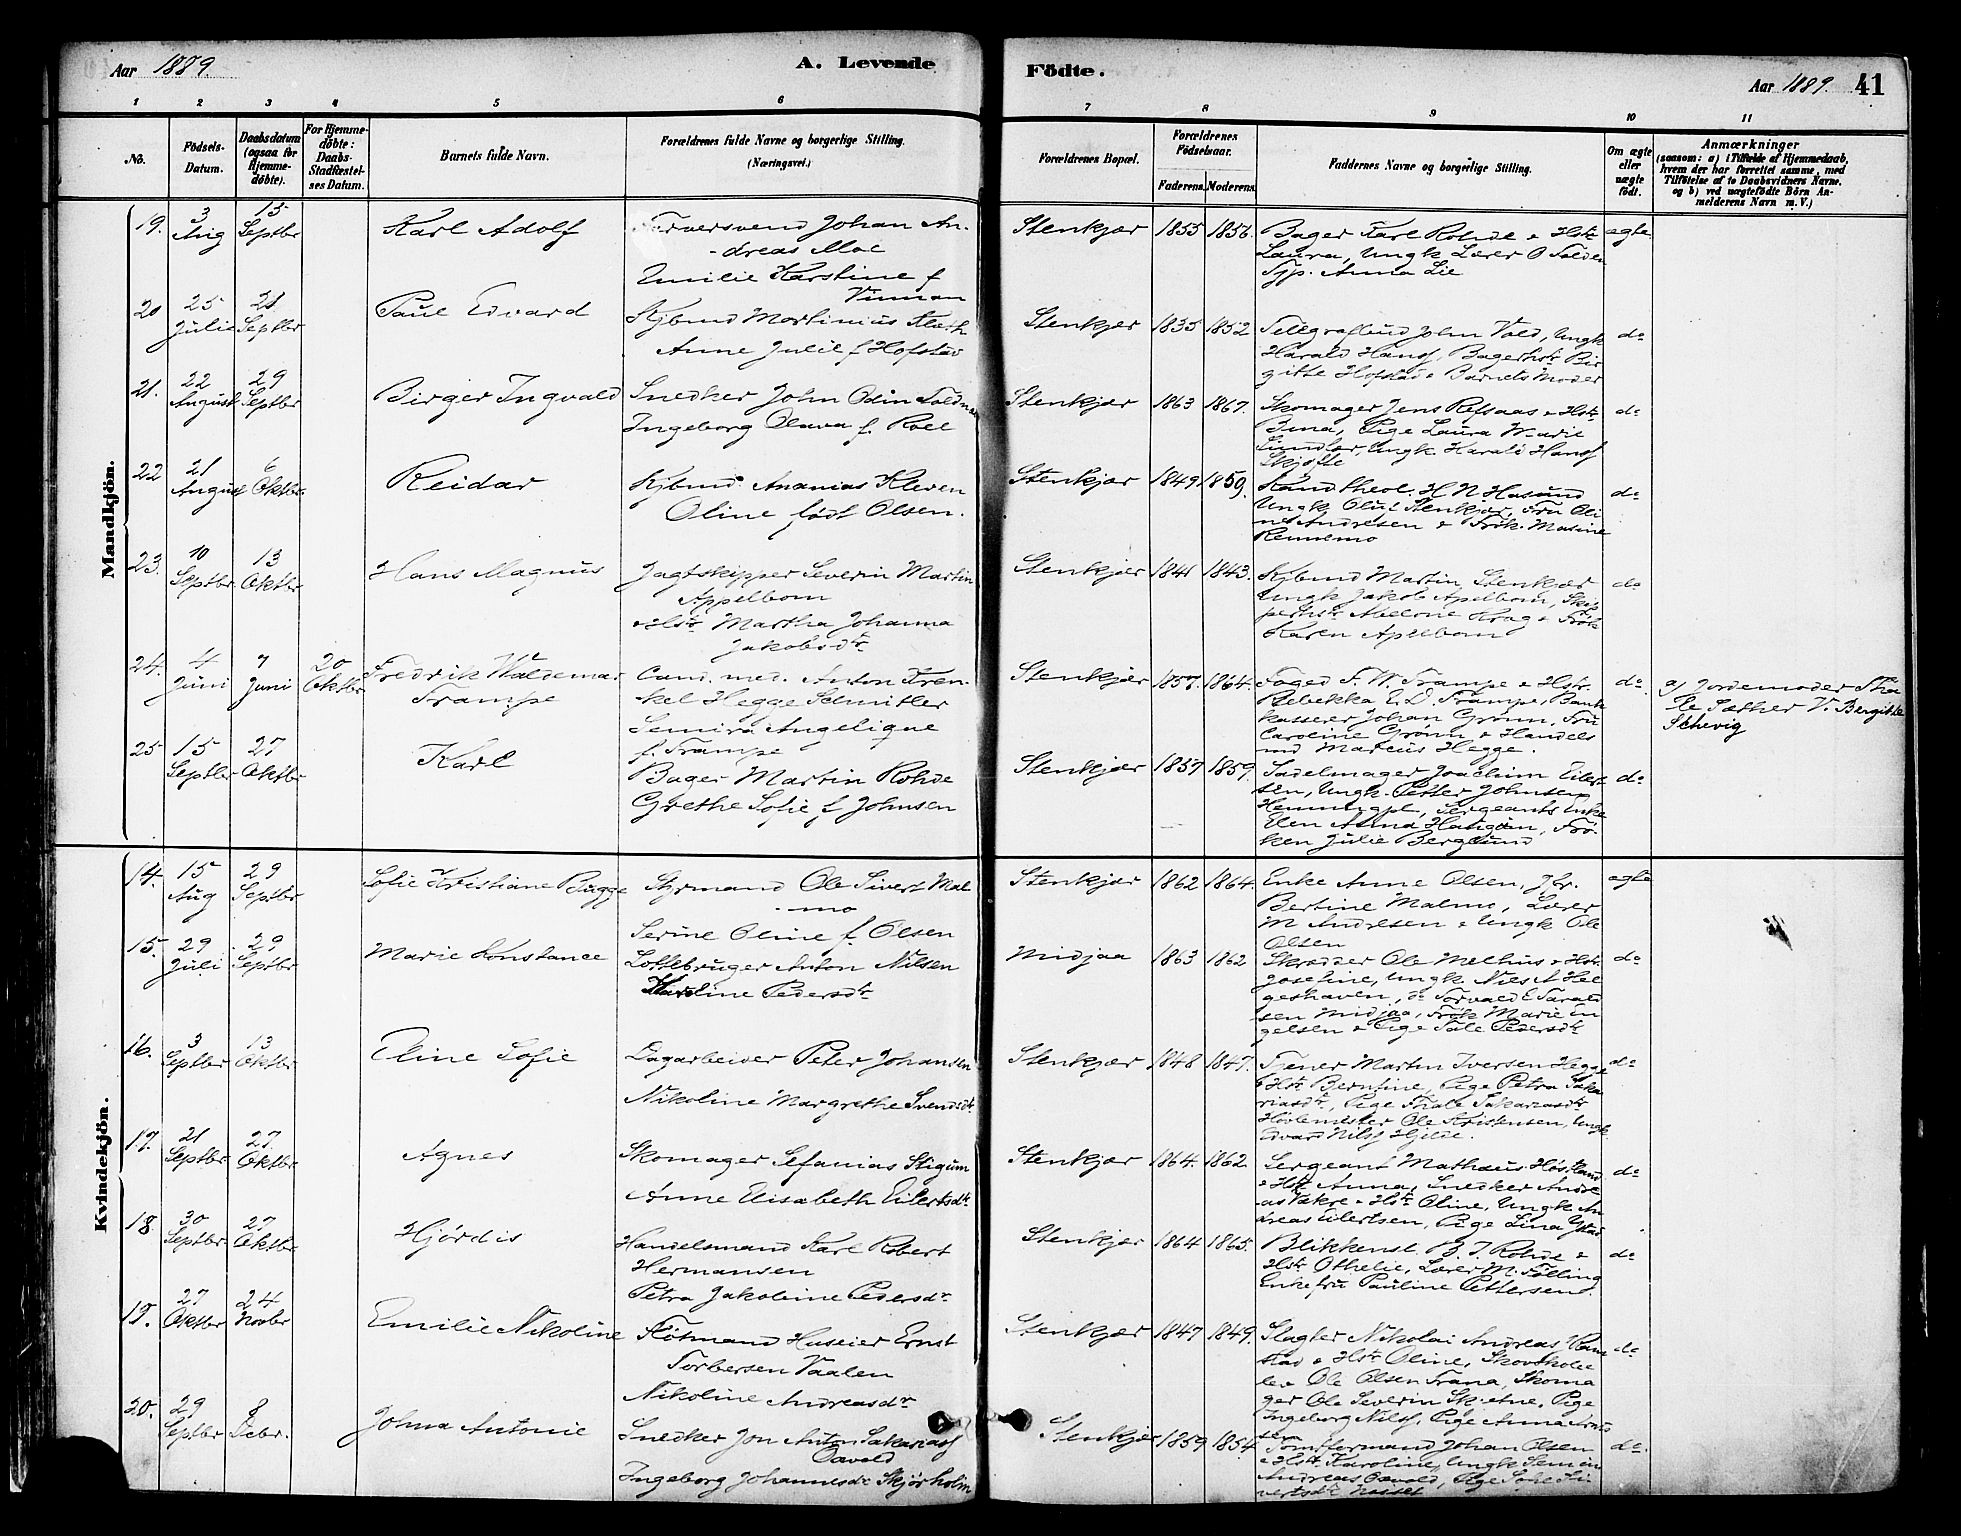 Aar 1889.
A. Levende
Födte.
Aar 1889.
41
1 2 3 4 5 6
7 8 9 10 11
No.
Födsels-Datum.
Daabsdatum (ogsaa for Hjemme-döbte).
For Hjemme-döbte: Daabs-Stadfæstel-ses Datum.
Barnets fulde Navn.
Forældrenes fulde Navne og borgerlige Stilling.
(Næringsvei.)
Forældrenes Bopæl.
Forældrenes Födselsaar.
Faderens. Moderens.
Faddernes Navne og borgerlige Stilling.
Om ægte eller uægte födt.
Anmærkninger
(saasom: a) i Tilfælde af Hjemmedaab,
hvem der har forrettet samme, med
Tilföielse af to Daabsvidners Navne.
og b) ved uægtefödte Börn An-
melderens Navn m. V.)
Mandkjön.
19. 3 Aug 15 Septbr Karl Adolf
Farversvend Johan An-
dreas Moe
Emilie Karstine f
Vinman
Stenkjær 1855 1856.
Bager Karl Rohde & Hstr
Laura, Ungk Lærer O Folden
Tjp. Anna Lie
ægte
20 25 Julie 21 Septbr Paul Edvard
Kjbmd Martinius Kleth
Anne Julie f Hofstad
Stenkjer 1835 1852
Telegrafbud John Vold, Ungk
Harald Hansf, Bagerhstr Bir
gitte Hofstad & Barnets Moder
do
21. 22 August 29 Septbr Birger Ingvald
Snedker John Odin Foldn
Ingeborg Olava f. Roel
Stenkjær 1863 1867.
Skomager Jens Refsaas & Hstr
Bina, Pige Laura Marie
Sundler, Ungk Harald Hansf
Skjefte
do
22 21 August 6 Oktbr. Reidar
Kjbmd. Ananias Kleven
Oline födt Olsen.
Stenkjær 1849. 1859.
Kand theol. H N Hasund
Ungk Oluf Stenkjær, Fru Oli
ne Andresen & Frøk. Masine
Rennemo
do
23. 10 Septbr. 13 Oktbr Hans Magnus
Jagtskipper Severin Martin
Appelbom
& Hstr Martha Johanna
Jakobsdtr
Stenkjer 1841 1843.
Kjbmd Martin Stenkjær
Ungk Jakob Apelbom, Skip
perhstr Abelone Krog & Frøk
Karen Apelbom
do
24. 4 Juni 7 Juni 20 Oktbr Fredrik Waldemar
Trampe
Cand. med. Anton Fren-
kel Hegge Schnitler
Semira Angelique
f. Trampe
Stenkjær 1857. 1864.
Foged F. W Trampe & Hstr.
Rebekka L. D. Trampe, Bank
kasserer Johan Grønn, Fru
Caroline Grønn & Handels
md Marcus Hegge.
do
a) Jordemoder Tha
le Sæther V. Bergitte
Schevig
25 15 Septbr 27 Oktbr Karl
Bager Martin Rohde
Grethe Sofie f Johnsen
Stenkjær 1857 1859.
Sadelmager Joachim Eilert
sen, Ungk. Petter Johnsen
Hemmingpl, Sergeants Enke
Elen Anna Haugan, Frø-
ken Julie Berglund
do
Kvindekjön.
14. 15 Aug 29 Septbr Sofie Kristiane Bugge
Styrmand Ole Sivert Mal
mo
Serine Oline f. Olsen
Stenkjær 1862 1864.
Enke Anne Olsen, Jfr.
Bertine Malmo, Lærer
M Andresen & Ungk Ole
Olsen
ægte
15. 29 Juli 29 Septbr Marie Konstance
Lottebruger Anton Nilsen
Karoline Pedersdtr
Midjaa 1863 1862
Skrædder Ole Melhus & Hstr.
Josefine, Ungk Nils A Hel
geshaven, do Torvald E Tarald
sen Midjaa, Frøk Marie En
gelsen & Pige Tale Pedersdtr
do
16. 3 Septbr 13 Oktbr Eline Sofie
Dagarbeider Peter Johansen
Nikoline Margrethe Svendsdtr
Stenkjær 1848 1847.
Tjener Martin Iversen Hegge
& Hstr Berntine, Pige Petra Saka
riasdtr, Pige Thale Sakariasdtr
Hovlemester Ole Kristensen, Ungk
Edvard Nilsf Hjelde.
do
17. 21 Septbr 27. Oktbr Agnes
Skomager Sefanias Stigum
Anne Elisabeth Eilertsdtr
Stenkjær 1864. 1862.
Sergeant Mathæus Høstland
& Hstr Anna, Snedker Andre
as Vækre & Hstr Oline, Ungk An
dreas Eilertsen, Pige Lina Ystad
do
18 30 Septbr. 27 Oktbr. Hjördis
Handelsmand Karl Robert
Hermansen
Petra Jakobine Pedersdtr
Stenkjær 1864 1865.
Blikkensl. B. J. Rohde &
Hstr Othelie, Lærer M. Følling
Enkefru Pauline Pettersen.
do
19. 27 Oktbr 24 Novbr Emilie Nikoline
Flötmand Huseier Ernst
Torbersen Vaalen
Nikoline Andreasdtr
Stenkjær 1847 1849.
Slagter Nikolai Andreas Ram
stad & Hstr Oline, Skovskole
lev Ole Olsen Trana, Skoma
ger Ole Severin Skjetne, Pige
Ingeborg Nilsf, Pige Anna Arnt
sen
do
20. 29 Septbr 8 Decbr. Johna Antonie
Snedker Jon Anton Sakariasf
Oxvold
Ingeborg Johannesdtr Skjørholm
Stenkjer 1859 1854
Tomtformand Johan Olsen
& Hstr Karoline, Ungk Semin
Andreas Oxvold, Pige Sofie Si
vertsdtr Næsset
do